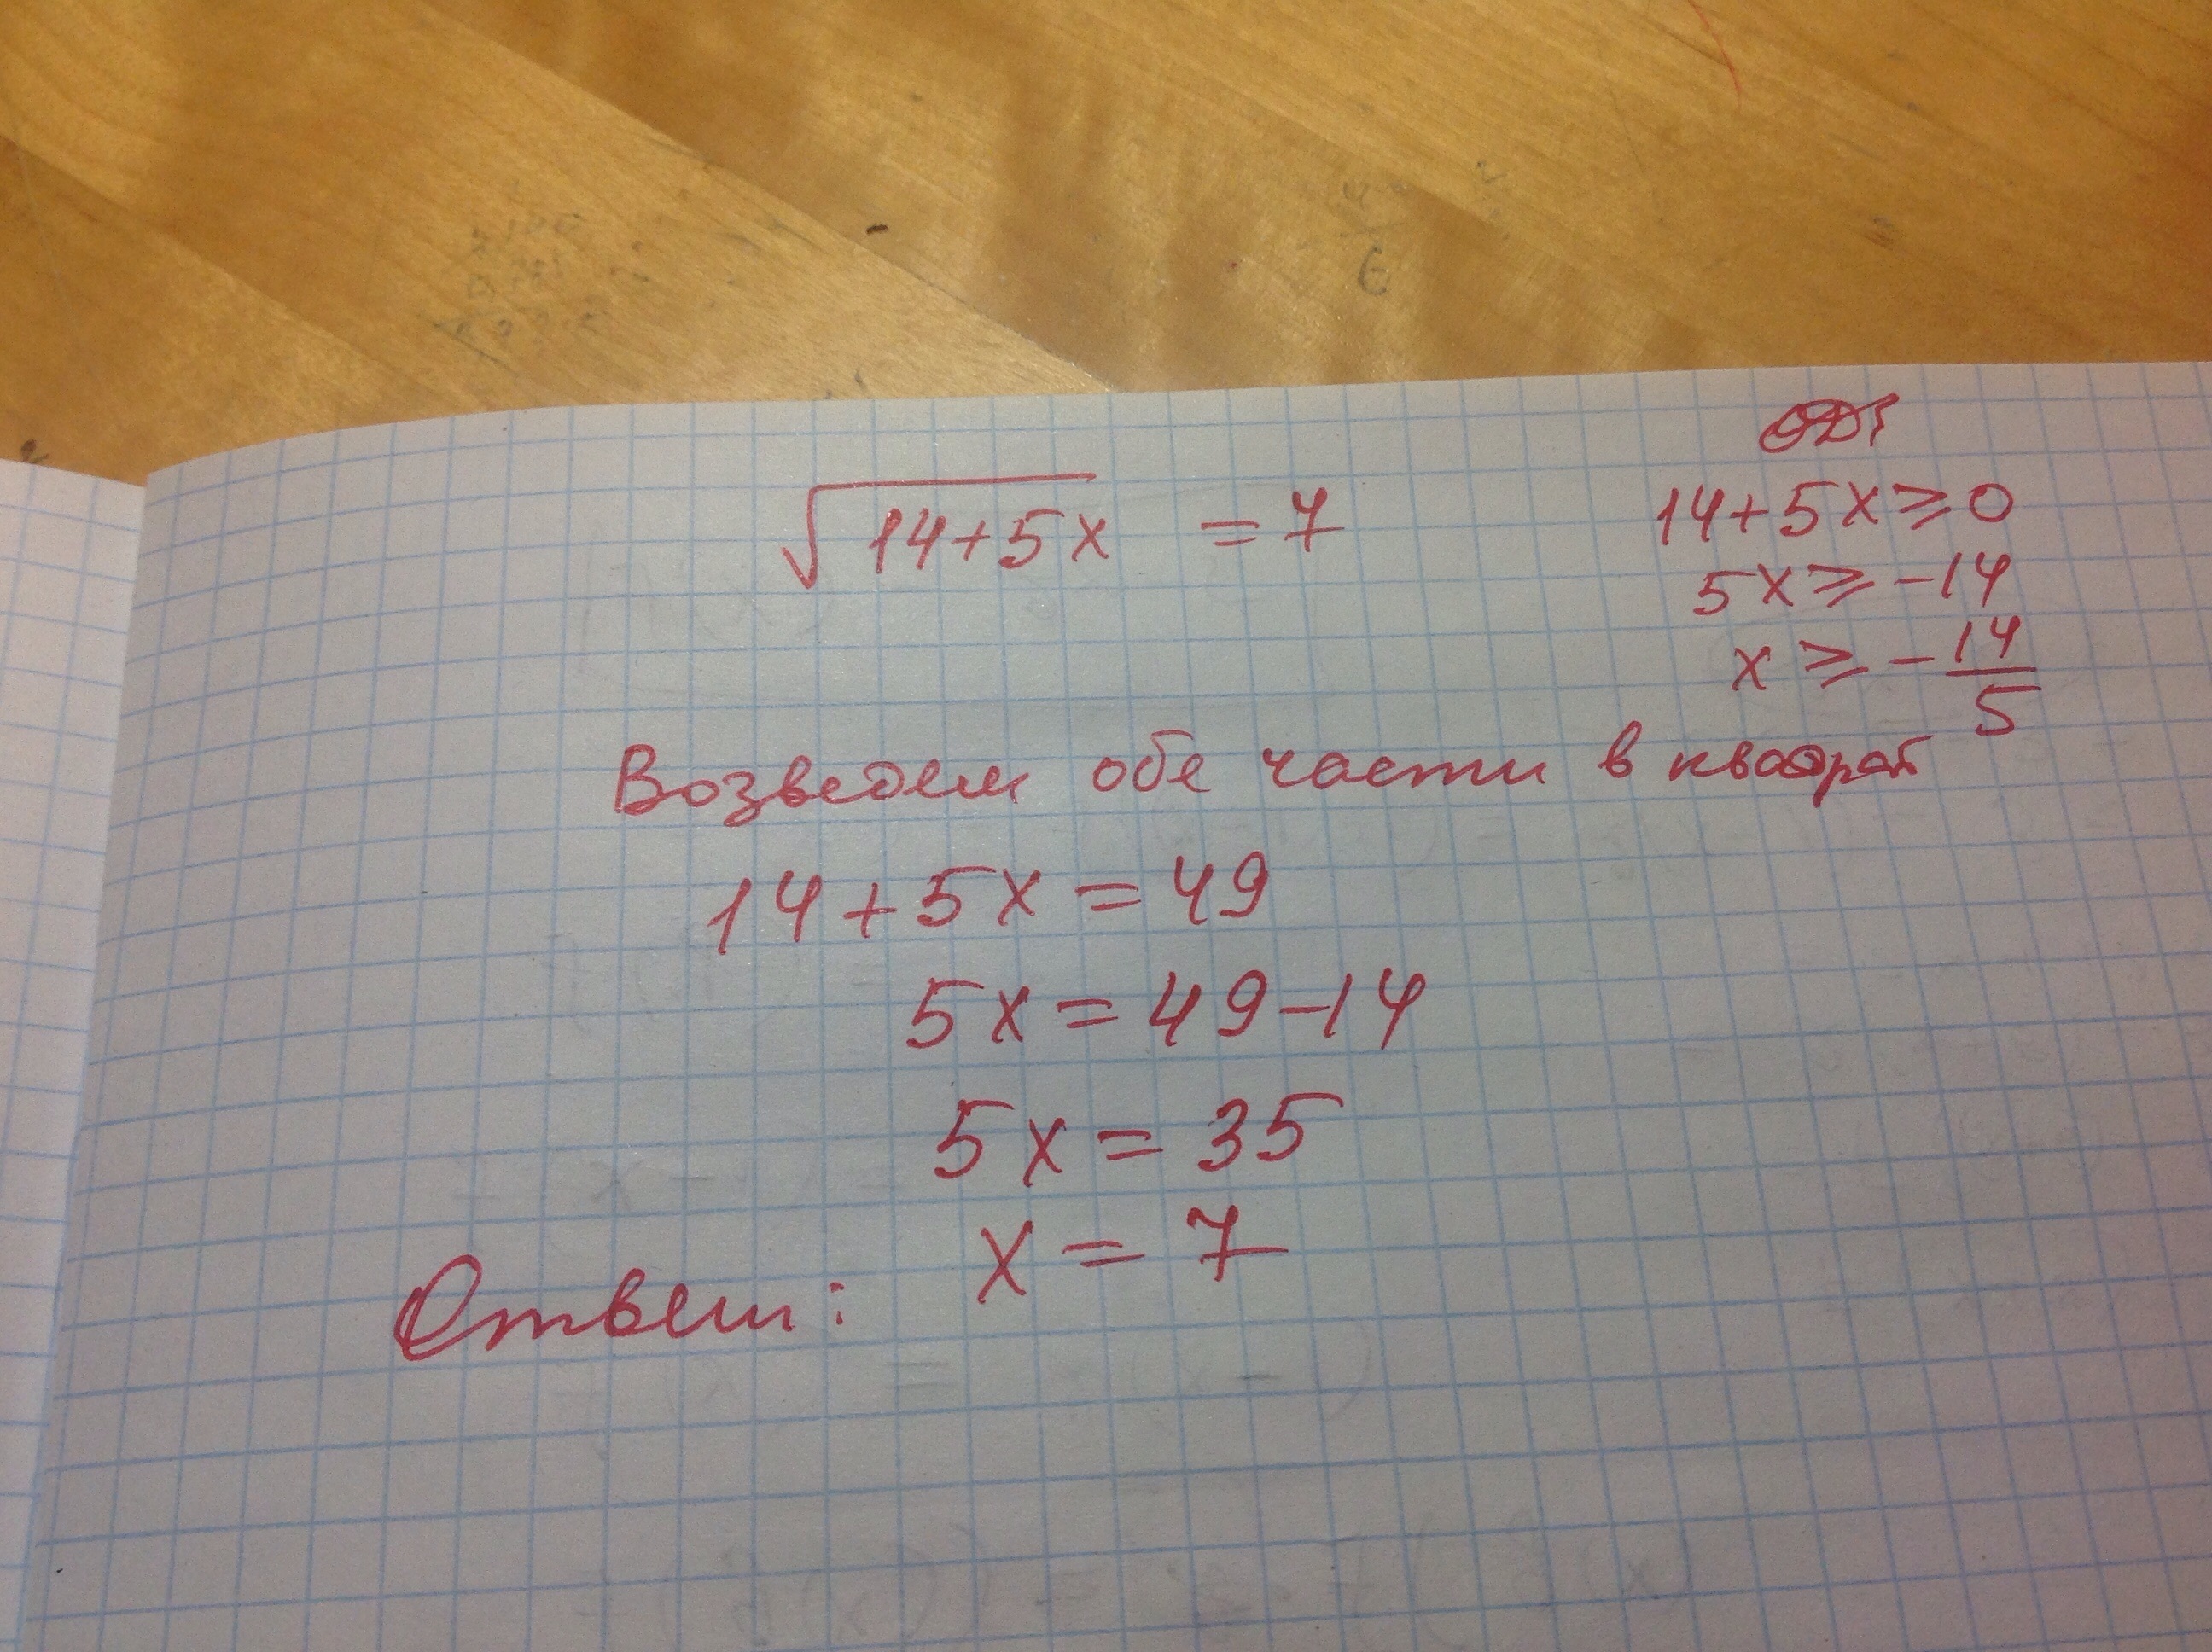 √14+5x = 7
ОДЗ
14+5x ≥ 0
5x ≥ -14
x ≥ -14/5
Возведем обе части в квадрат
14+5x = 49
5x = 49-14
5x = 35
x = 7
Ответ: